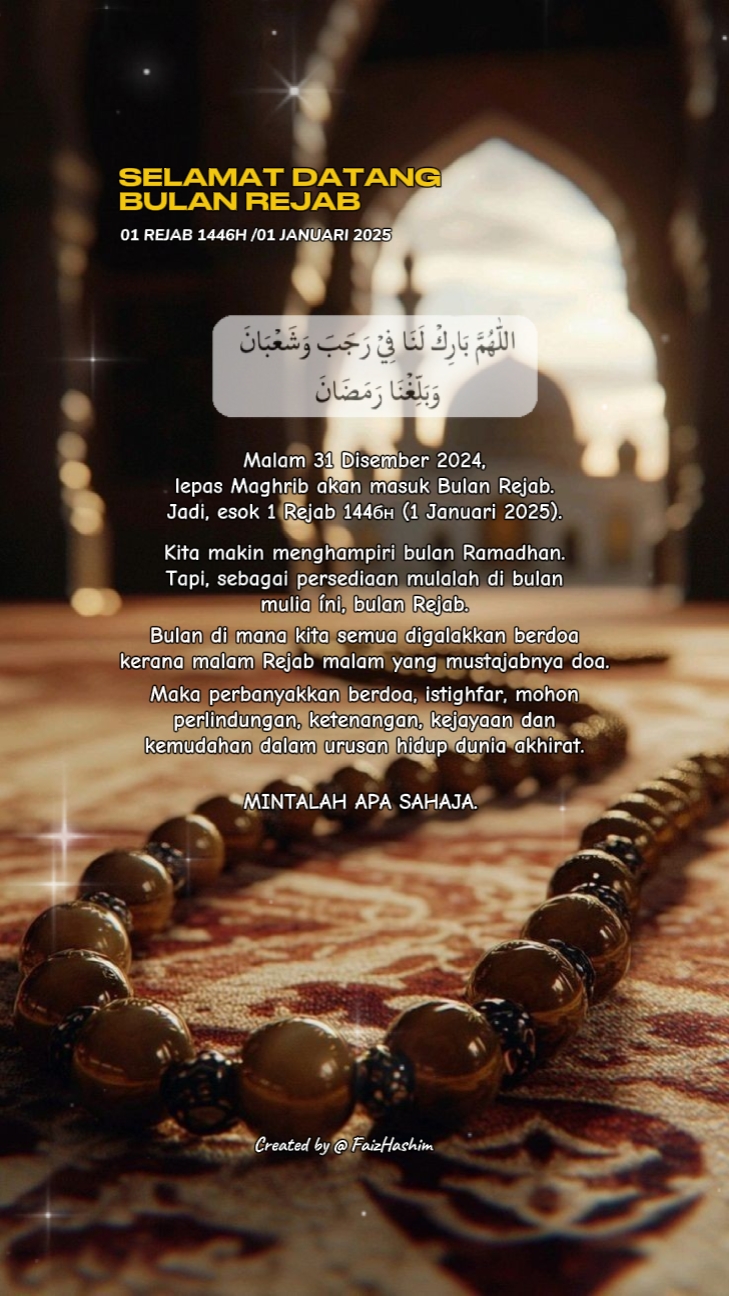 SELAMAT DATANG
BULAN REJAB
01 REJAB 1446H /01 JANUARI 2025
اللّٰهُمَّ بَارِكْ لَنَا فِيْ رَجَبَ وَشَعْبَانَ
وَبَلِّغْنَا رَمَضَانَ
Malam 31 Disember 2024,
lepas Maghrib akan masuk Bulan Rejab.
Jadi, esok 1 Rejab 1446H (1 Januari 2025).
Kita makin menghampiri bulan Ramadhan.
Tapi, sebagai persediaan mulalah di bulan
mulia íni, bulan Rejab.
Bulan di mana kita semua digalakkan berdoa
kerana malam Rejab malam yang mustajabnya doa.
Maka perbanyakkan berdoa, istighfar, mohon
perlindungan, ketenangan, kejayaan dan
kemudahan dalam urusan hidup dunia akhirat.
MINTALAH APA SAHAJA.
Created by @ FaizHashim